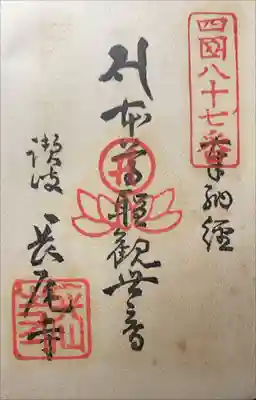 四国八十七番
奉納経
本尊聖観世音
讃岐
長尾寺